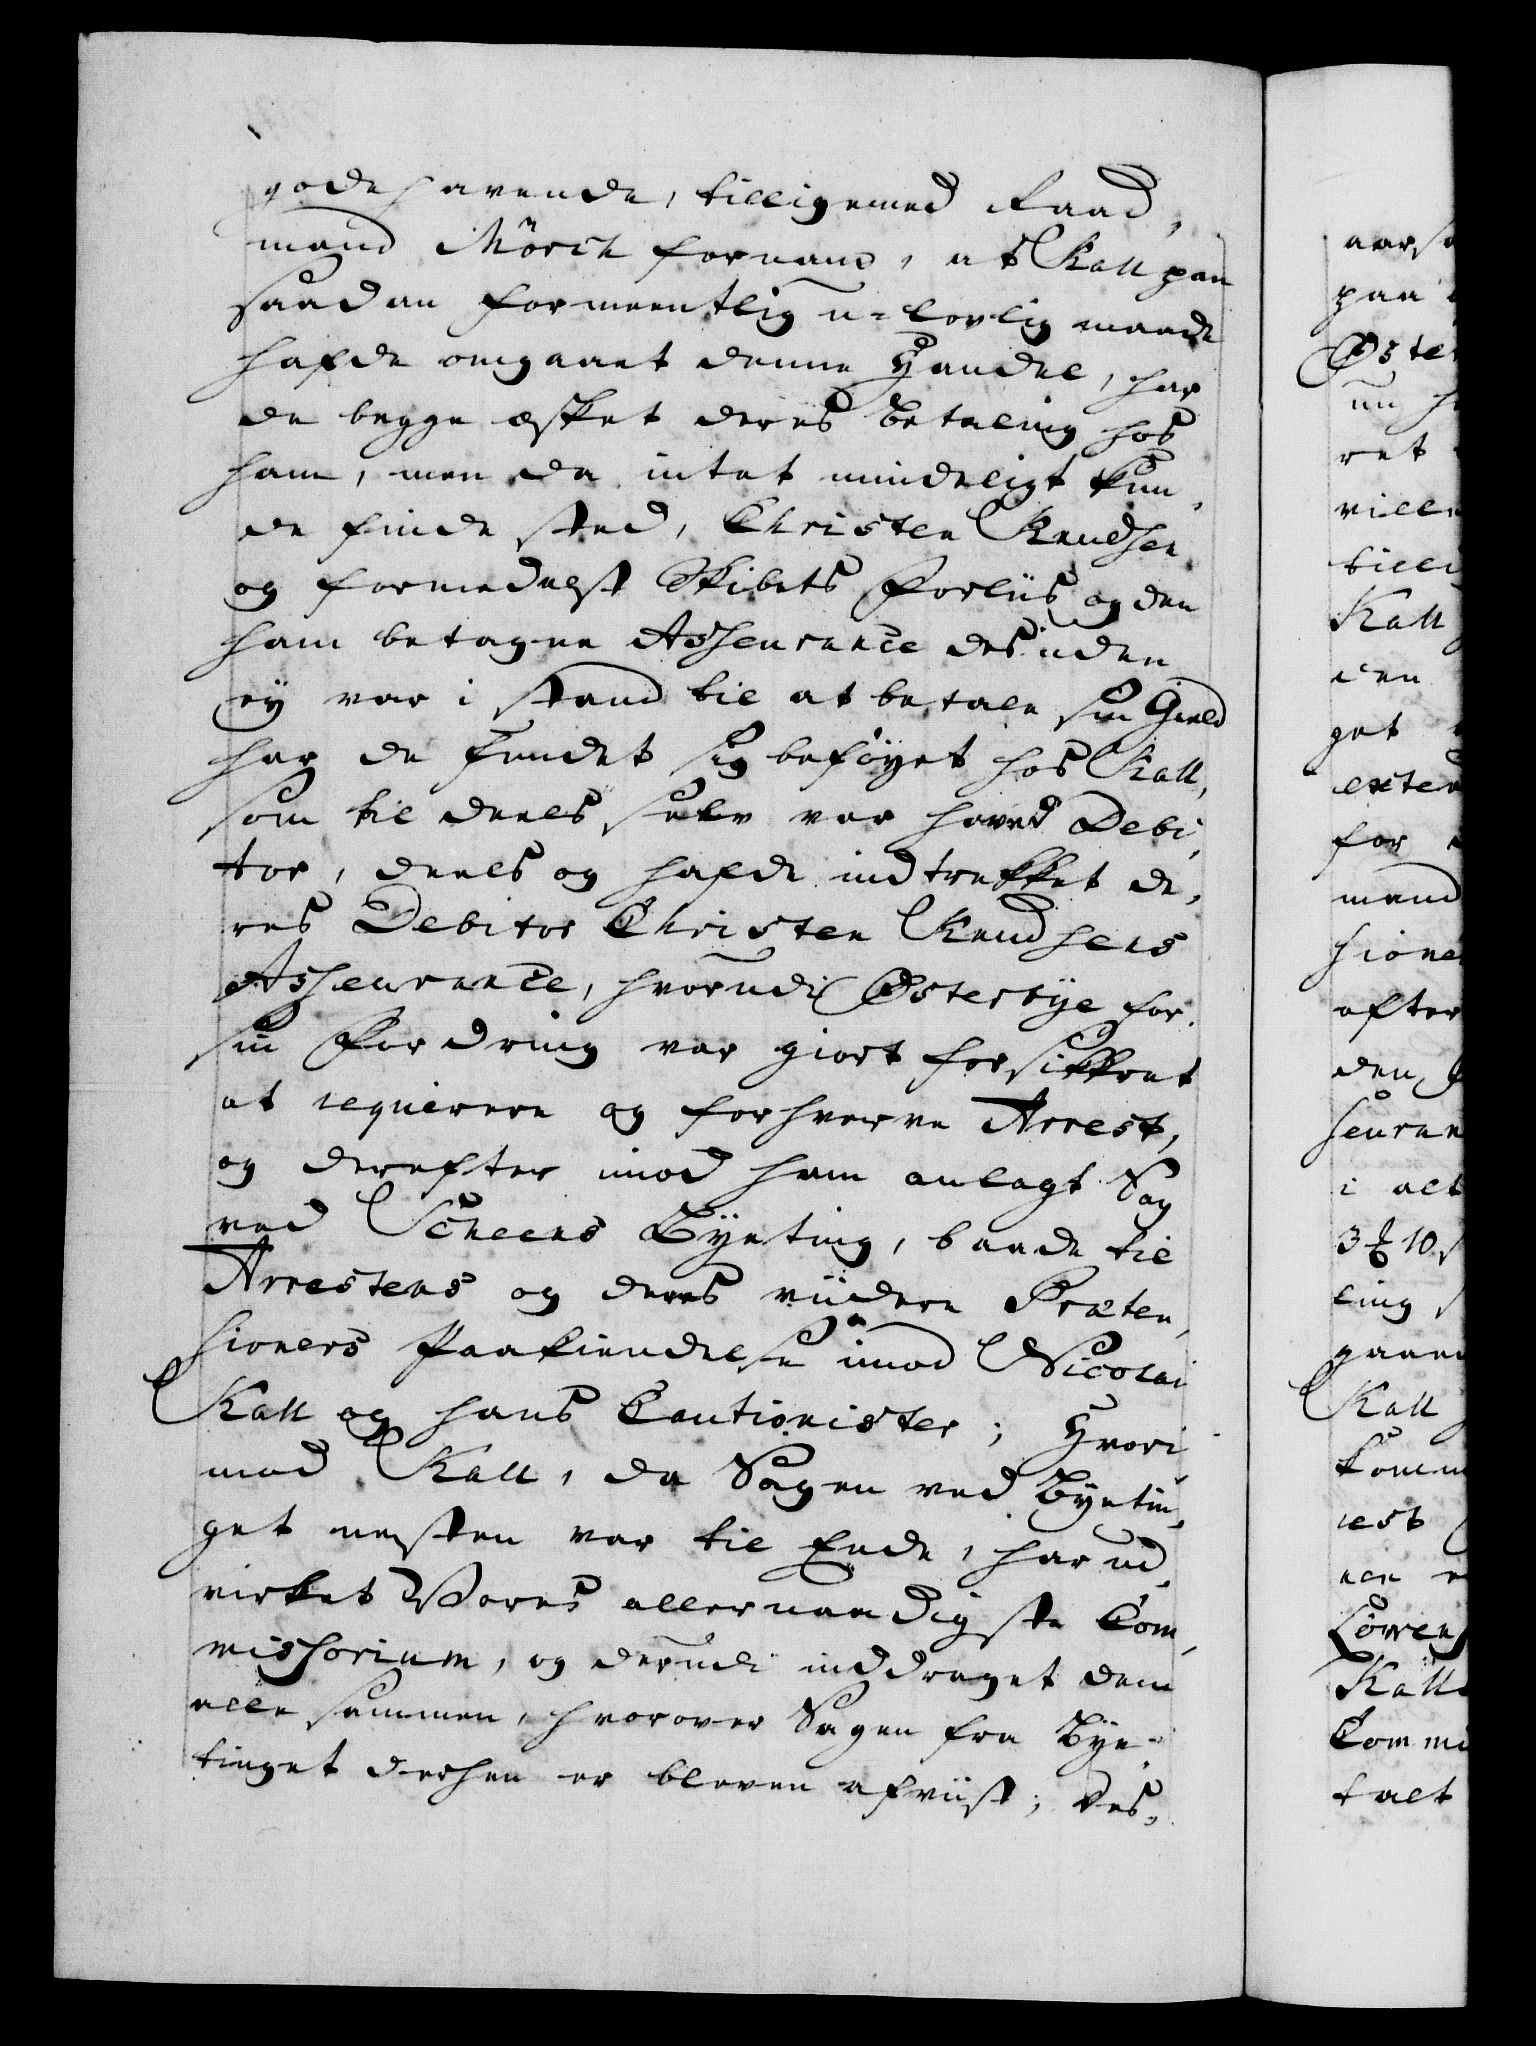 godehavende, tilligemed Raad,
mand Mörch fornam, at Kall paa
saadan formeentlig u=lovlig maade
hafde omgaaet denne Handel, har
de begge æsket deres Betaling hos
ham, men da intet mindeligt kun,
de finde sted, Christen Knudsen
og formedelst Skibets Forliis og den
ham betagne Asseurance desuden
ey var i stand til at betale sin Gield
har de fundet sig beföyet hos Kall,
som til deels selv var hoved Debi,
tor, deels og hafde indtrekket de,
res Debitor Christen Knudsens
Asseurance, hvorudi Østerbye for
sin Fordring var giort forsikkret
at requirere og forhverve Arrest,
og derefter imod ham anlagt Sag
ved Scheens Byeting, baade til
Arrestens og deres viidere Præten,
sioners Paakiendelse imod Nicolai
Kall og hans Cautionister; Hvori
mod Kall, da Sagen ved Byetin,
get nesten var til Ende, har ud,
virket Vores allernaadigste Com,
missorium, og derudi inddraget dem
alle sammen, hvorover Sagen fra Bye-
tinget derhen er bleven afviist; Des,
paa
Øster
ret
Kall
get
for
mand
efter
den
i alt
3 10
Kall
Kall
talt